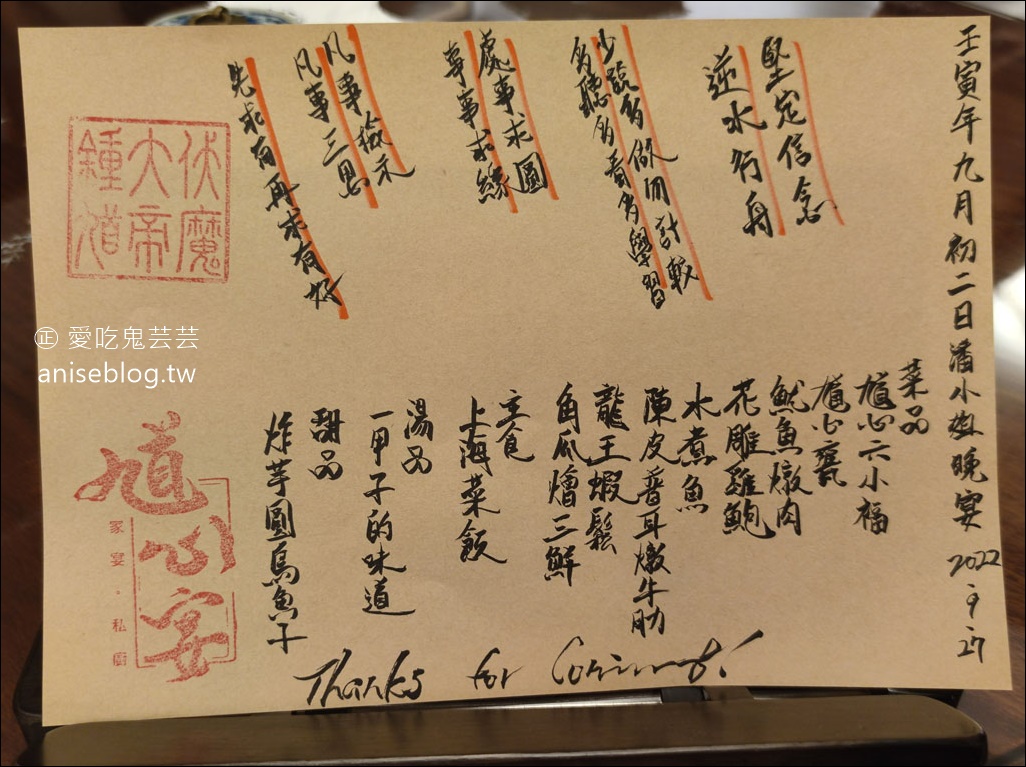 壬寅年九月初二日潘小姐晚宴 2022.9.27
堅定信念
逆水行舟
少說多做開計較
多聽多看多學習
處事求圓
事事求緣
凡事檢示
凡事三思
先求有再求有好
菜品
馗心六小福
馗心甕
魷魚燉肉
花雕雞鮑
水煮魚
陳皮普耳燉牛肋
龍王蝦鬆
角瓜燴三鮮
主食
上海菜飯
湯品
一甲子的味道
甜品
炸芋圓烏魚子
Thanks for Coming!
伏魔
大帝
鍾馗
馗心宴
家宴·私廚
正 愛吃鬼芸芸
aniseblog.tw